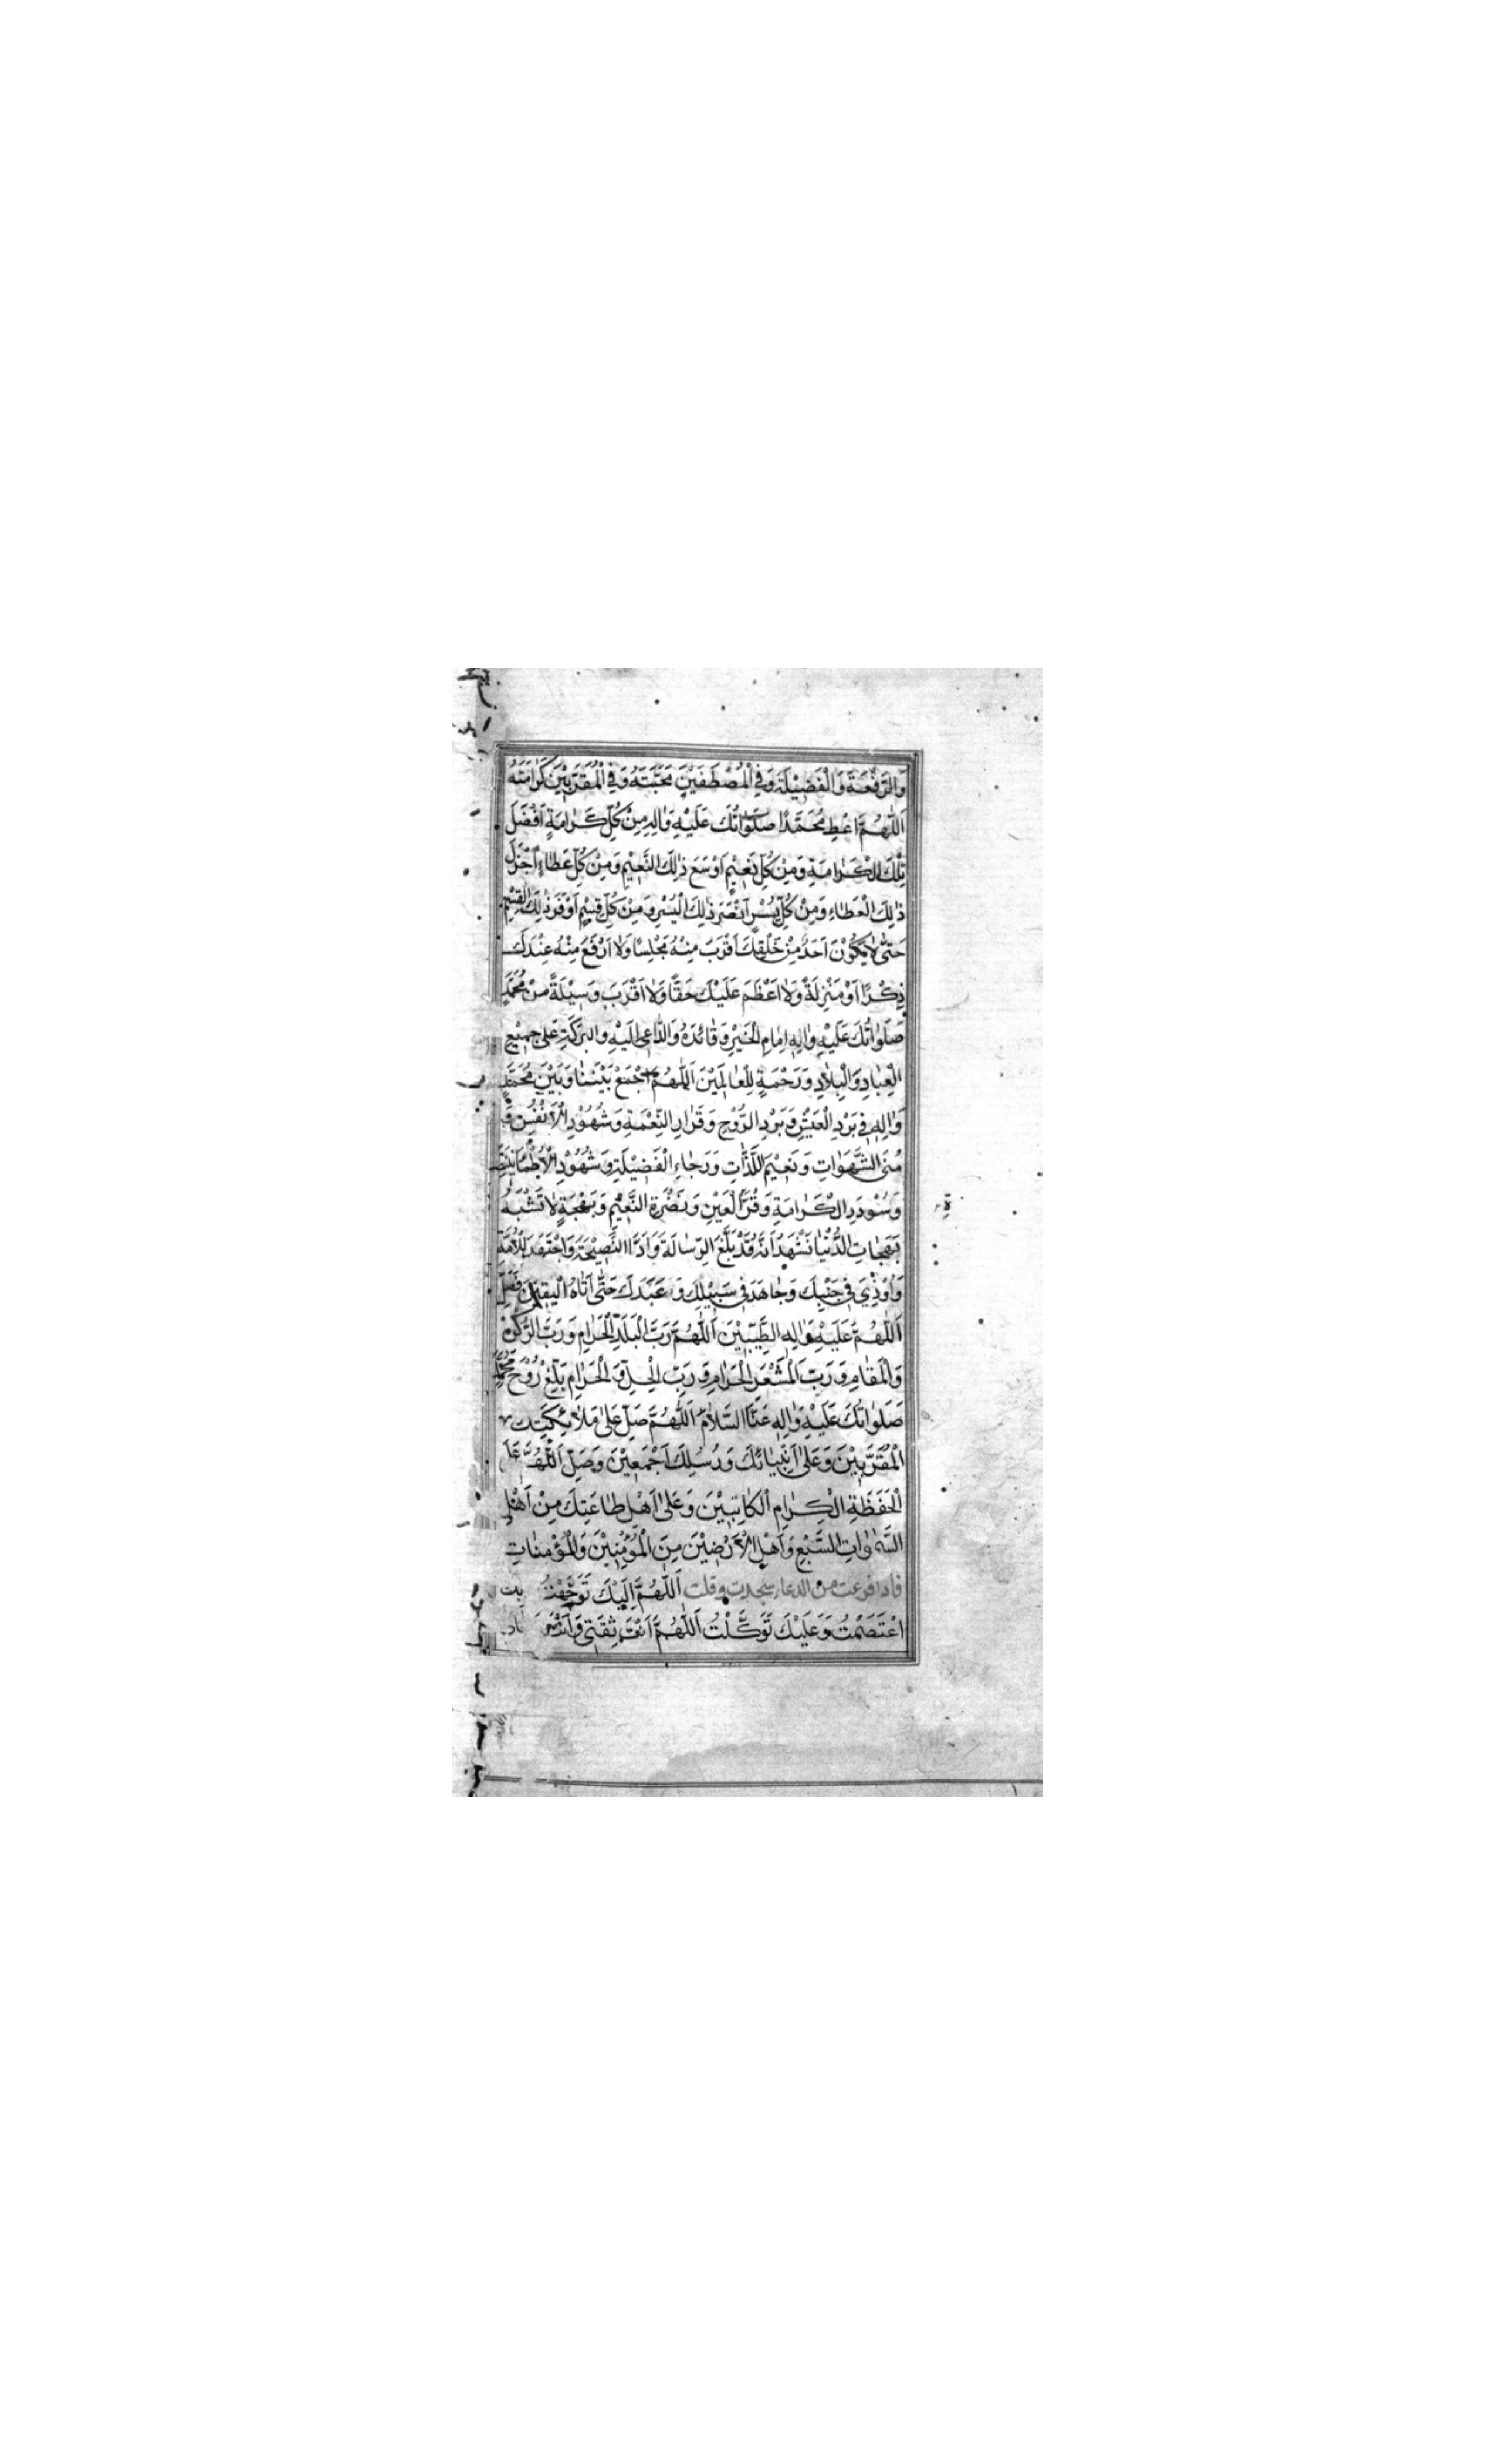 وَالرَّفْعَةَ وَالْفَضِيْلَةَ وَفِي الْمُصْطَفَيْنَ مَحَبَّتَهُ وَفِي الْمُقَرَّبِيْنَ كَرَامَتَهُ
اَللّٰهُمَّ اَعْطِ مُحَمَّدًا صَلَوَاتُكَ عَلَيْهِ وَاٰلِهِ مِنْ كُلِّ كَرَامَةٍ اَفْضَلَ
تِلْكَ الْكَرَامَةِ وَمِنْ كُلِّ نَعِيْمٍ اَوْسَعَ ذٰلِكَ النَّعِيْمِ وَمِنْ كُلِّ عَطَاءٍ اَجْزَلَ
ذٰلِكَ الْعَطَاءِ وَمِنْ كُلِّ يُسْرٍ اَنْضَرَ ذٰلِكَ الْيُسْرِ وَمِنْ كُلِّ قِسْمٍ اَوْفَرَ ذٰلِكَ الْقِسْمِ
حَتّٰى لَا يَكُوْنَ اَحَدٌ مِنْ خَلْقِكَ اَقْرَبَ مِنْهُ مَجْلِسًا وَلَا اَرْفَعَ مِنْهُ عِنْدَكَ
ذِكْرًا اَوْ مَنْزِلَةً وَلَا اَعْظَمَ عَلَيْكَ حَقًّا وَلَا اَقْرَبَ وَسِيْلَةً مِنْ مُحَمَّدٍ
صَلَوَاتُكَ عَلَيْهِ وَاٰلِهِ اِمَامِ الْخَيْرِ وَقَائِدِهُ وَالدَّاعِي اِلَيْهِ وَالْبَرَكَةِ عَلٰى جَمِيْعِ
الْعِبَادِ وَالْبِلَادِ وَرَحْمَةٍ لِلْعَالَمِيْنَ اَللّٰهُمَّ اجْمَعْ بَيْنَنَا وَبَيْنَ مُحَمَّدٍ
وَاٰلِهِ فِي بَرْدِ الْعَيْشِ وَبَرْدِ الرَّوْحِ وَقَرَارِ النِّعْمَةِ وَشُهُوْدِ الْاَنْفُسِ وَ
مُنَى الشَّهَوَاتِ وَنَعِيْمِ اللَّذَّاتِ وَرَجَاءِ الْفَضِيْلَةِ وَشُهُوْدِ الْاِطْمَانِيْنَةِ
وَسُوْدَدِ الْكَرَامَةِ وَقُرَّةِ الْعَيْنِ وَنَضْرَةِ النَّعِيْمِ وَبَهْجَةٍ لَا تَشْبَهُ
بَهَجَاتِ الدُّنْيَا نَشْهَدُ اَنَّهُ قَدْ بَلَّغَ الرِّسَالَةَ وَاَدَّا النَّصِيْحَةَ وَاجْتَهَدَ لِلْاُمَّةِ
وَاُوْذِيَ فِي جَنْبِكَ وَجَاهَدَ فِي سَبِيْلِكَ وَعَبَدَكَ حَتّٰى اَتَاهُ الْيَقِيْنُ فَصَلِّ
اَللّٰهُمَّ عَلَيْهِ وَاٰلِهِ الطَّيِّبِيْنَ اَللّٰهُمَّ رَبَّ الْبَلَدِ الْحَرَامِ وَرَبَّ الرُّكْنِ
وَالْمَقَامِ وَرَبَّ الْمَشْعَرِ الْحَرَامِ وَرَبَّ الْحِلِّ وَالْحَرَامِ بَلِّغْ رُوْحَ مُحَمَّدٍ
صَلَوَاتُكَ عَلَيْهِ وَاٰلِهِ عَنَّا السَّلَامَ اَللّٰهُمَّ صَلِّ عَلٰى مَلَائِكَتِكَ
الْمُقَرَّبِيْنَ وَعَلٰى اَنْبِيَائِكَ وَرُسُلِكَ اَجْمَعِيْنَ وَصَلِّ اَللّٰهُمَّ عَلَى
الْحَفَظَةِ الْكِرَامِ الْكَاتِبِيْنَ وَعَلٰى اَهْلِ طَاعَتِكَ مِنْ اَهْلِ
السَّمٰوَاتِ السَّبْعِ وَاَهْلِ الْاَرَضِيْنَ مِنَ الْمُؤْمِنِيْنَ وَالْمُؤْمِنَاتِ
فاذا فرغت من الدعاء سجدت وقلت اَللّٰهُمَّ اِلَيْكَ تَوَجَّهْتُ
اعْتَصَمْتُ وَعَلَيْكَ تَوَكَّلْتُ اَللّٰهُمَّ اَنْتَ ثِقَتِي وَاَنْتَ